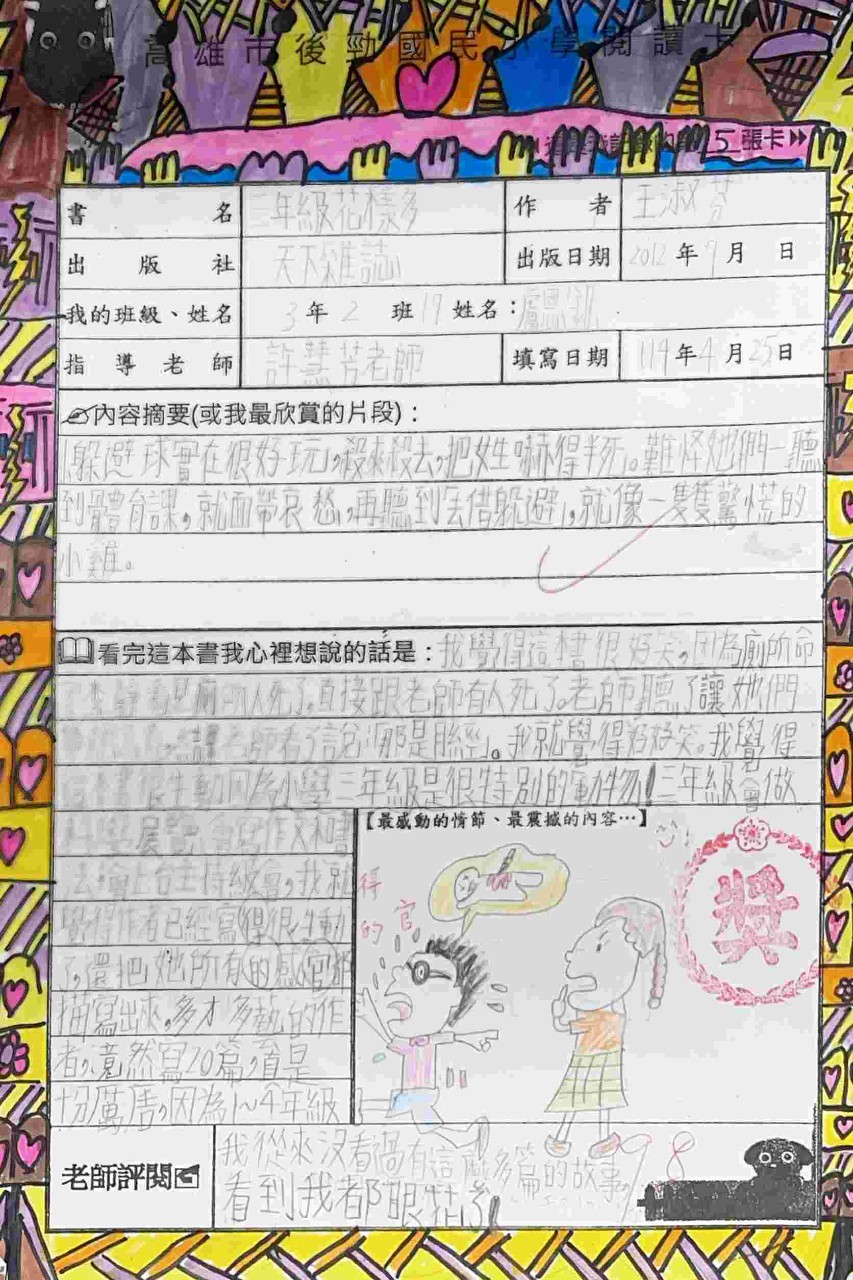 高雄市後勁國民小學閱讀卡
5 張卡
書名 三年級花樣多 作者 王淑芬
出版社 天下雜誌 出版日期 2012年9月 日
我的班級、姓名 3年2班19 姓名：盧恩
指導老師 許慧芳老師 填寫日期 114年4月25日
內容摘要(或我最欣賞的片段)：
躲避球實在很好玩,殺來殺去,把女生嚇得半死。難怪她們一聽
到體育課,就面帶哀愁,再聽到去借躲避,就像一隻隻驚慌的
小雞。
看完這本書我心裡想說的話是：我覺得這本書很好笑,因為廁所命
廁所有人死了。直接跟老師有人死了。老師聽了讓她們
課老師看了說「那是豚經」。我就覺得好好笑。我覺得
這本書很生動因為小學三年級是很特別的動物!三年級會做
科學展說會寫作文和書
法,會上台主持級會,我就
覺得作者已經寫得很生動 得
了,還把她所有的感官都 的 官
描寫出來。多才多藝的作
者,竟然寫20篇,還是
十份萬唐,因為1~4年級
【最感動的情節、最震撼的內容…】
獎
老師評閱
我從來沒看過有這麼多篇的故事,
看到我都眼花了!
98